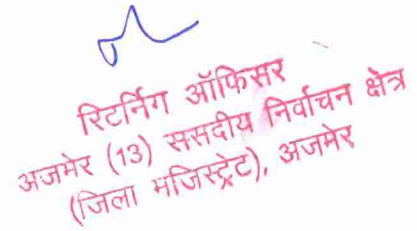 रिटर्निग ऑफिसर
अजमेर (13) ससदीय निर्वाचन क्षेत्र
(जिला मजिस्ट्रेट), अजमेर